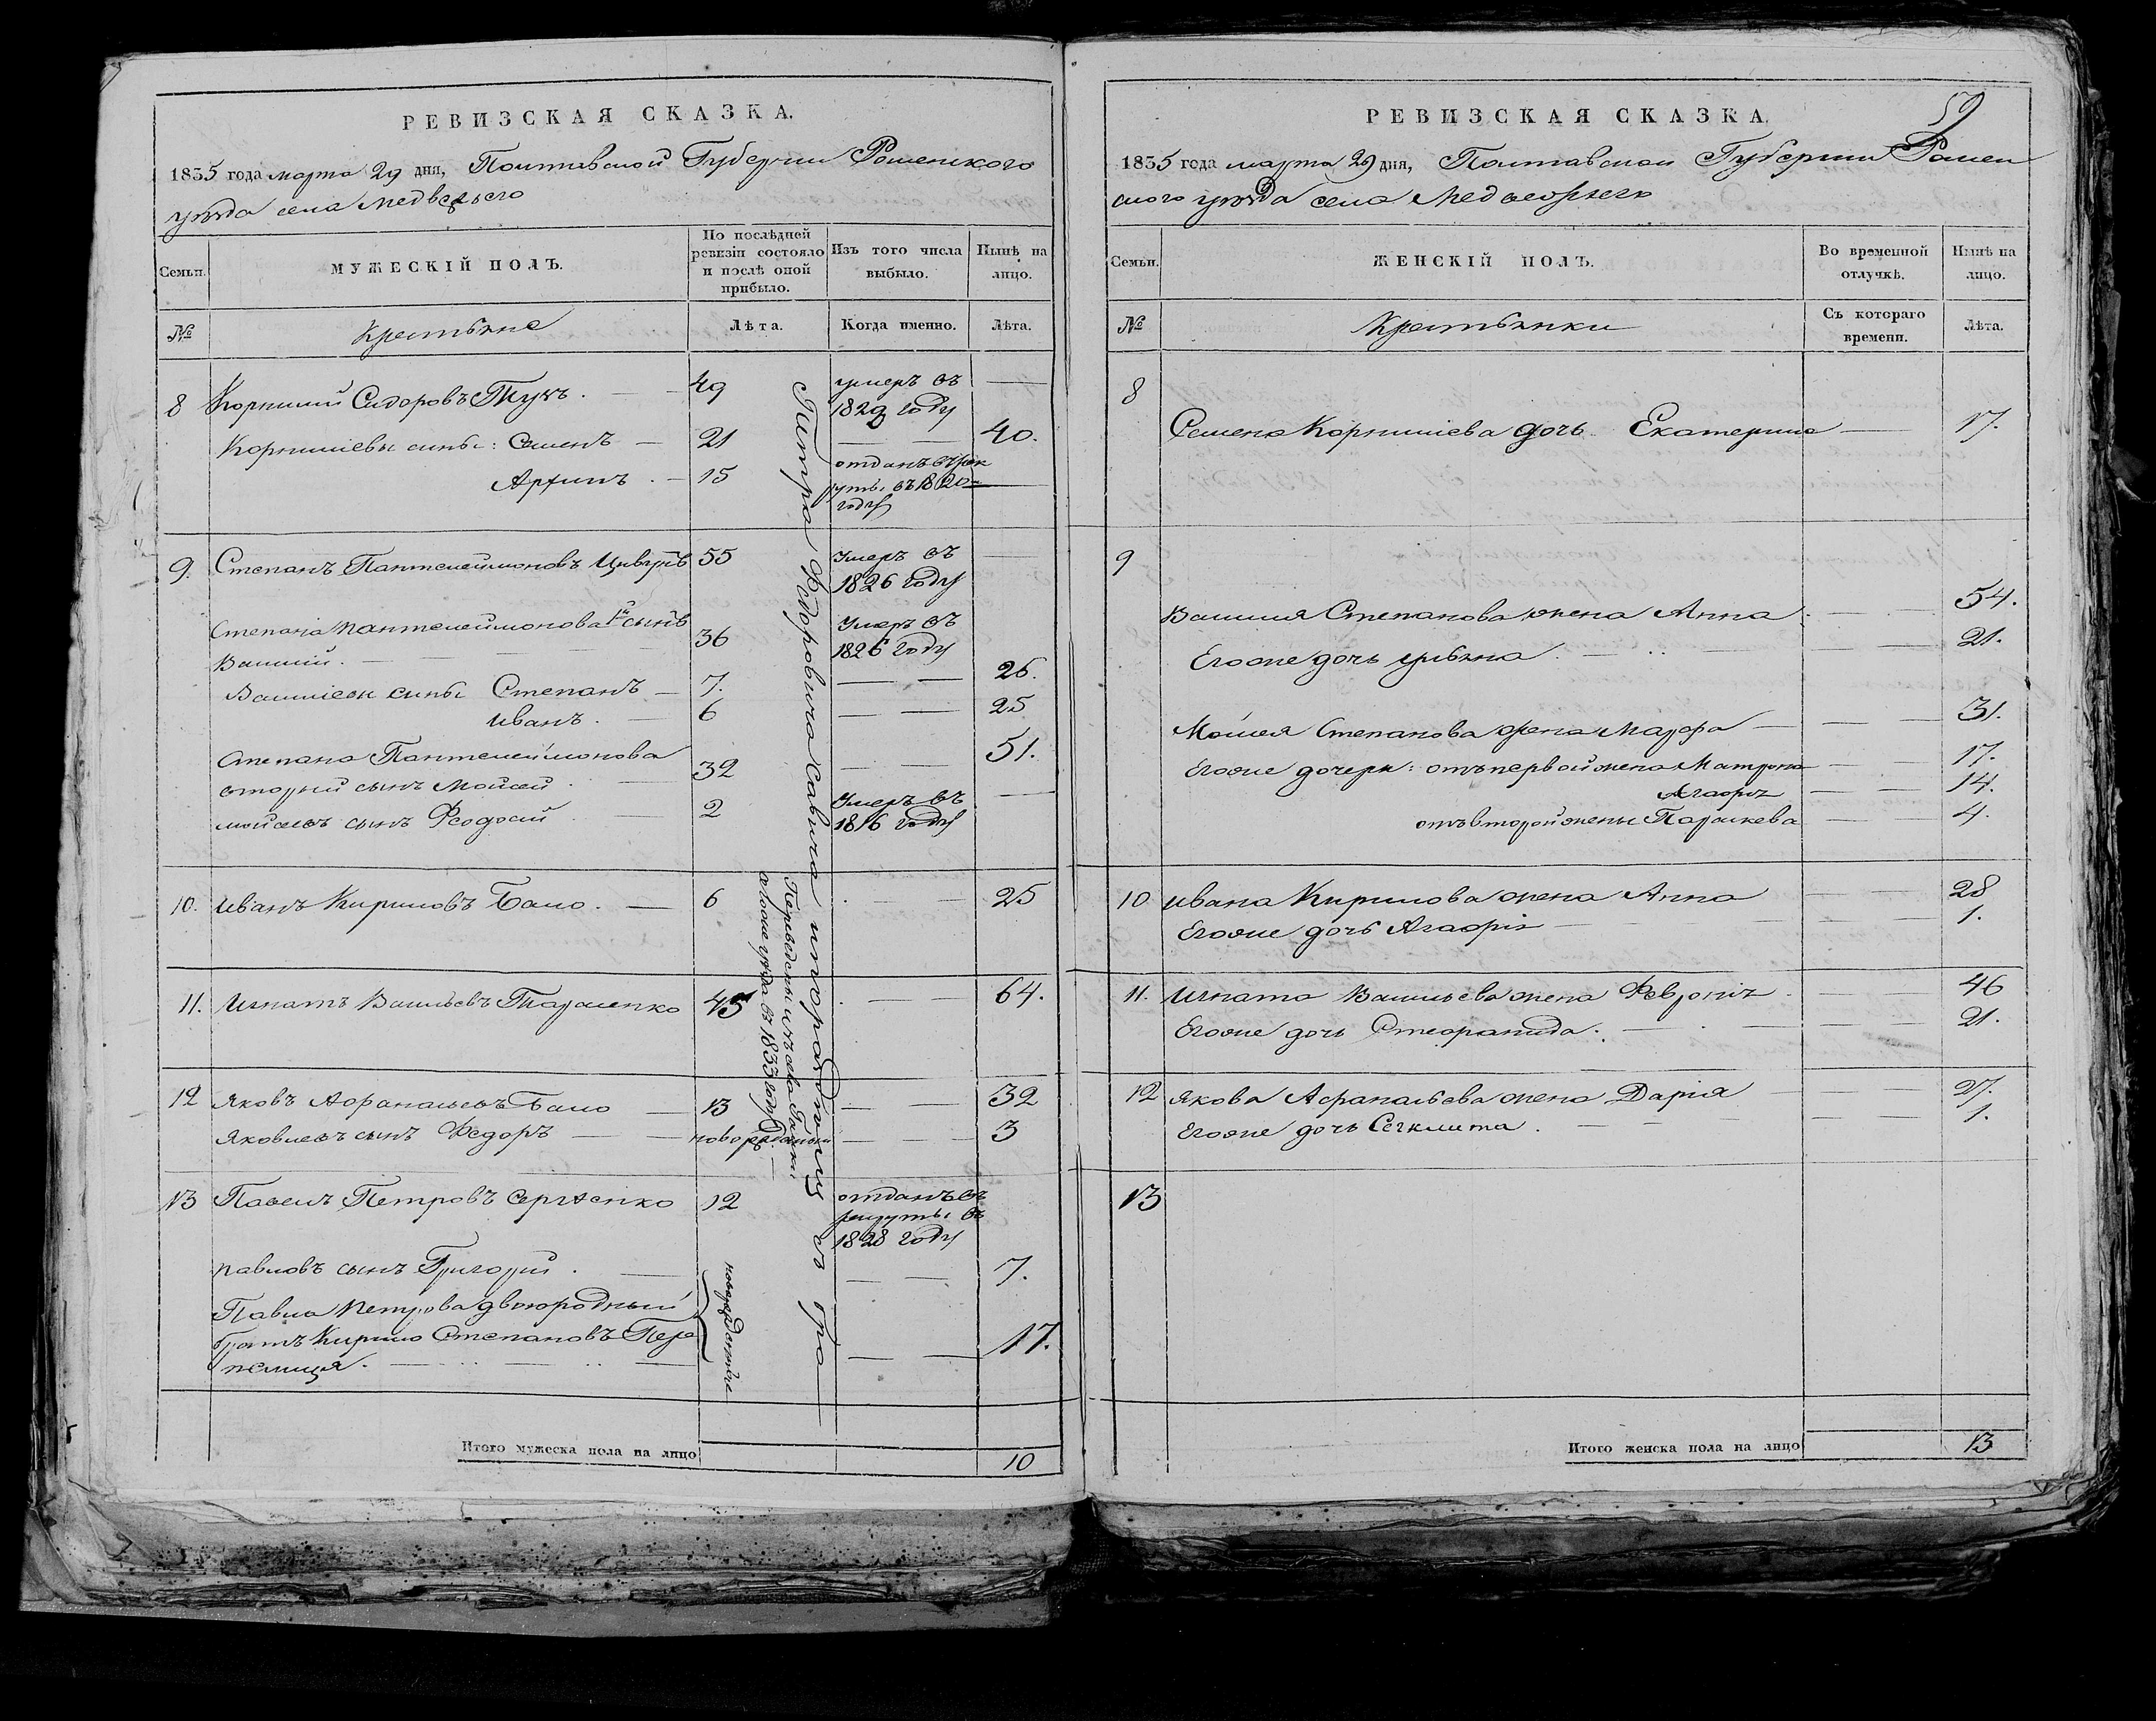 РЕВИЗСКАЯ СКАЗКА.
1835 года марта 29 дня, Полтавской Губернии Роменского
уезда села Медвежьего
Семьи.
МУЖЕСКІЙ ПОЛЪ.
По послѣдней
ревизіи состояло
и послѣ оной
прибыло.
Изъ того числа
выбыло.
Нынѣ на
лицо.
№
Крестьяне
Лѣта.
Когда именно.
Лѣта.
8 Корнилий Сидоровъ 49 умеръ въ
1829 году
Корнилиевы сыны: Семенъ 21 40.
15 отданъ в рек
руты въ 1820
году
9. Степанъ Пантелеймоновъ 55 Умеръ въ
1826 году
Степана Пантелеймонова 1й сынъ 36 Умеръ въ
Василий. 1826 году
Василиевы сыны Степанъ 7. 26.
Иванъ. 6 25
Степана Пантелеймонова 51.
второй сынъ Мойсей 32
мойсеевъ сынъ Феодосий 2 Умеръ въ
1816 году
10. Иванъ Кириловъ Бало. 6 25
11. Игнатъ Васильевъ Тарасенко 45 64.
12 Яковъ Афанасьевъ Бало 13 32
Яковлевъ сынъ Федоръ новорожденый 3
13 Павелъ Петровъ Сергѣенко 12 отданъ въ
рекруты въ
1828 году
павловъ сынъ Григорий. 7.
Павла Петрова двоюродный
братъ Кирило Степановъ Пере
пелица. 17.
новорожденные
Петра Федоровича Савича
Переведены изъ села Галки
того же уезда въ 1833 году
Итого мужеска пола на лицо
10
59
РЕВИЗСКАЯ СКАЗКА.
1835 года марта 29 дня, Полтавской Губернии Ромен
ского уезда села Медвежьего
Семьи.
ЖЕНСКІЙ ПОЛЪ.
Во временной
отлучкѣ.
Нынѣ на
лицо.
№
Крестьянки
Съ котораго
времени.
Лѣта.
8
Семена Корнилиева дочь Екатерина 17.
9
Василия Степанова жена Анна 54.
Его же дочь Ульяна. 21.
Мойсея Степанова жена Марфа 31.
Его же дочери: отъ первой жены Матрона 17.
Агафия 14.
отъ второй жены Параскева 4.
10 Ивана Кирилова жена Анна 28
Его же дочь Агафия 1.
11. Игната Васильева жена Феврония 46
Его же дочь Стефанида. 21.
12 Якова Афанасьева жена Дария 27.
Его же дочь 1.
13
Итого женска пола на лицо
13